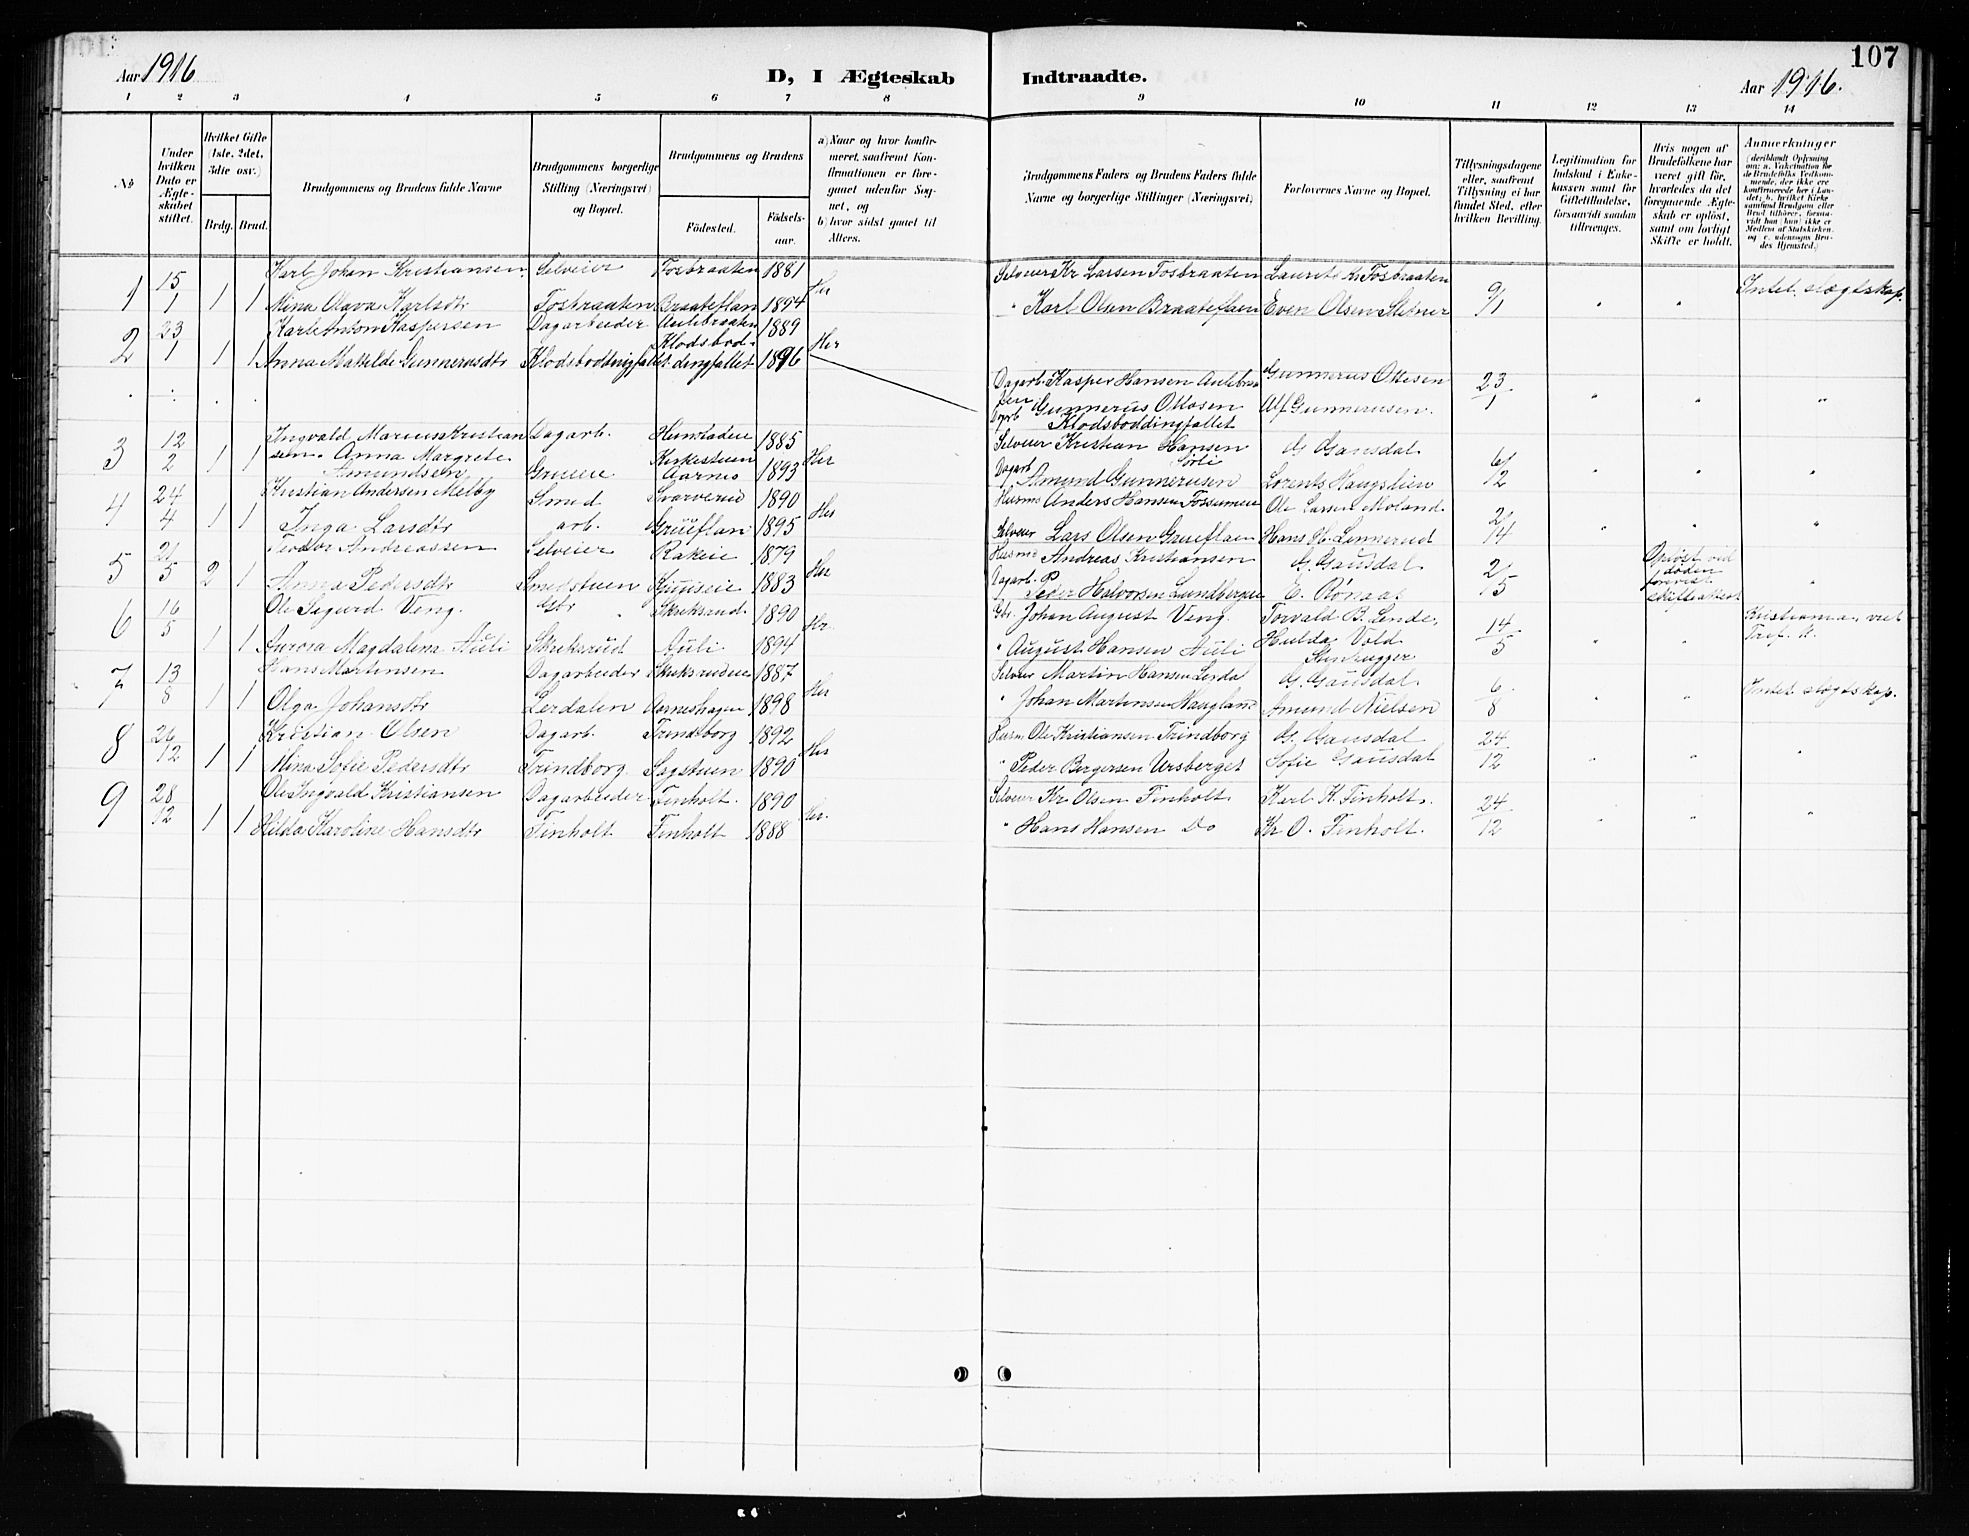 107
Aar 1916
D, I Ægteskab
Indtraadte.
Aar 1916.
1 2 3 4 5 6 7 8 9 10 11 12 13 14
No
Under hvilken Dato er Ægteskabet stiftet.
Hvilket Gifte (1ste, 2det, 3die osv.)
Brdg. Brud.
Brudgommens og Brudens fulde Navne
Brudgommens borgerlige Stilling (Næringsvei) og Bopæl.
Brudgommens og Brudens
Födested.
Födsels-aar.
a) Naar og hvor konfirmeret, saafremt Konfirmationen er foregaaet udenfor Sognet, og
b) hvor sidst gaaet til Alters.
Brudgommens Faders og Brudens Faders fulde Navne og borgerlige Stillinger (Næringsvei)
Forlovernes Navne og Bopæl.
Tillysningsdagene eller, saafremt Tillysning ei har fundet Sted, efter hvilken Bevilling.
Legitimation for Indskud i Enkekassen samt for Giftetilladelse, forsaavidt saadan tiltrænges.
Hvis nogen af Brudefolkene har været gift før, hvorledes da det foregaaende Ægteskab er oplöst, samt om lovligt Skifte er holdt.
Anmerkninger
1 15/1 1 1 Karl Johan Kristiansen Selveier Fosbraaten 1881 Her Selveier Kr Larsen Fosbraaten Laurits Kr Fosbraaten 9/1 " " Intet slegtskap
Mina Olava Karlsdtr Fosbraaten Braateflan 1894 " Karl Olsen Braateflaen Even Olsen Stetner
2 23/1 1 1 Karl Anton Kaspersen Dagarbeider Aulibraaten 1889 Her
Anna Mathilde Gunnerusdtr Klodsboddingfallet Klodsboddingfallet 1896
Dagarb. Kasper Hansen Aulibraaten Gunnerus Ottesen 23/1 " " "
Dgarb Gunnerus Ottosen Klodsboddingfallet Alf Gunnerusen.
3 12/2 1 1 Ingvald Marius Kristiansen. Dagarb. 1885 Her Selveier Kristian Hansen Sørli G Gausdal 6/2 " " "
Anna Margrete Amundsen Grueie Kirkestuen Aarnes 1893 Dagarb Amund Gunnerusen Lorents Haugslien
4 24/4 1 1 Kristian Andersen Melby Smed Svarverie 1890 Her Husm Anders Hansen Fossumeie Ole Larsen Moland. 2/4 " " "
Inga Larsdtr arb. Grueflan 1895 Selveier Lars Olsen Grueflaen Hans H. Linnerud
5 21/5 2 1 Teodor Andreassen Selveier Rakeie 1879 Her Husmd Andreas Kristiansen G. Gausdal 2/5 Opløst ved døden forevist skifteattest "
Anna Pedersdtr Smedstuen 1883 Dagarb. Peder Halvorsen Lundbergeie E. Rønaas
6 16/5 1 1 Ole Sigurd Veng. Gbr Skriksrud 1890 Her. Gbr. Johan August Veng. Torvald B. Lende, 14/5 " " Kristiania, vest
Aurora Magdalena Auli Skriksrud Auli 1894 " August Hansen Auli Hulda Vold
7 13/8 1 1 Hans Martinsen Dagarbeider Skriksrudeie 1887 Her Selveier Martin Hansen Lerdal G. Gausdal. 6/8 " " Intet slegtskap.
Olga Johansdtr Lerdalen Aarneshagen 1898 " Johan Martinsen Haugland Amund Nielsen
8 26/12 1 1 Kristian Olsen Dagarb. Trindborg 1892 Her Husm Ole Kristiansen Trindborg G. Gausdal 24/12 " " "
Mina Sofie Pedersdtr Trindborg. Sagstuen 1890 " Peder Bergersen Ursberget Sofie Gausdal
9 28/12 1 1 Ole Ingvald Kristiansen Dagarbeider Finholt. 1890 Her. Selveier Kr Olsen Finholt. Karl K. Finholt. 24/12 " " "
Hilda Karoline Hansdtr Finholt Finholt 1888 " Hans Hansen Do Kr O. Finholt.